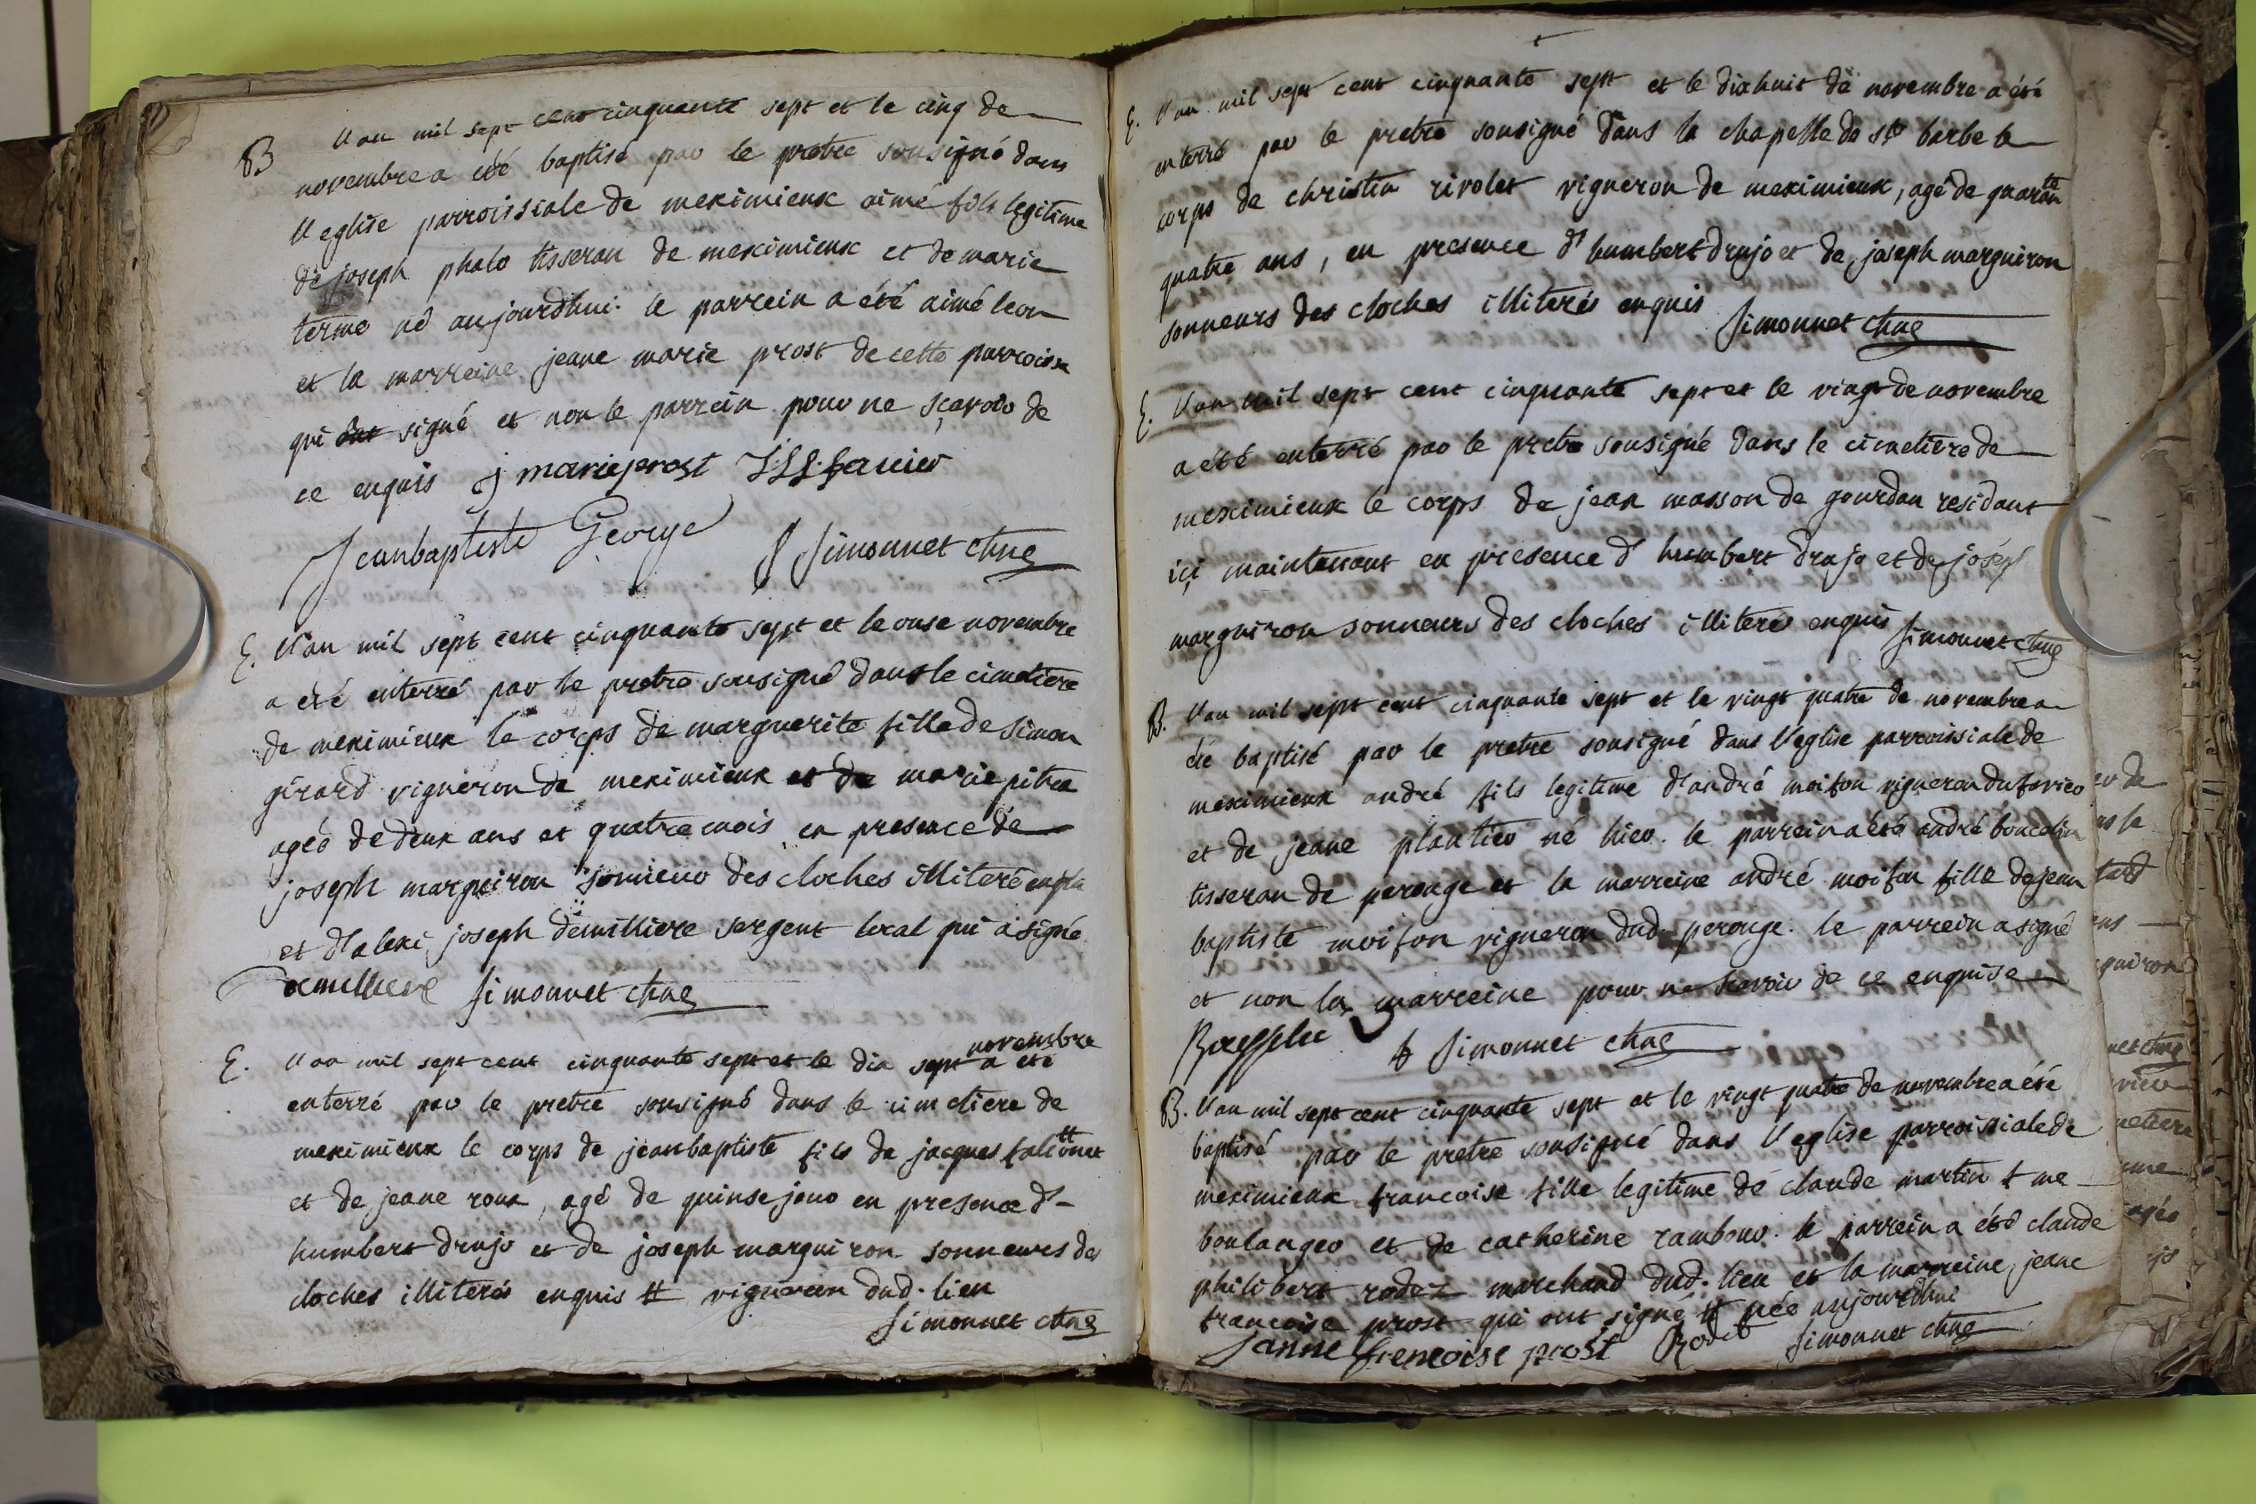 B l'an mil sept cent cinquante sept et le cinq de
novembre a été baptisé par le pretre sousigné dans
l'eglise parroissiale de meximieux aimé fils legitime
de joseph phalo tisseran de meximieux et de marie
terme né aujourdhui. le parrein a été aimé leon
et la marreine jeane marie prost de cette parroisse
qui signé et non le parrein pour ne sçavoir de
ce enquis j marie prost
Jeanbaptiste George Simonnet chne
E. l'an mil sept cent cinquante sept et le onse novembre
a été enterré par le pretre sousigné dans le cimetiere
de meximieux le corps de marguerite fille de simon
girard vigneron de meximieux et de marie pitre
agée de deux ans et quatre mois en presence de
joseph marguiron sonneur des cloches illiteré enquis
et d'alexi joseph demilliere sergent local qui a signé
demilliere Simonnet chne
E. l'an mil sept cent cinquante sept et le dix sept novembre a été
enterré par le pretre sousigné dans le cimetiere de
meximieux le corps de jeanbaptiste fils de jacques falconnet #
et de jeane roux, agé de quinse jour en presence d'
humbert drujo et de joseph marguiron sonneurs des
cloches illiterés enquis # vigneron dud. lieu
Simonnet chne
E. l'an mil sept cent cinquante sept et le dixhuit de novembre a été
enterré par le pretre sousigné dans la chapelle de ste barbe le
corps de christin rivolet vigneron de meximieux, agé de quarante
quatre ans, en presence d'humbert drujo et de joseph marguiron
sonneurs des cloches illiterés enquis Simonnet chne
E. l'an mil sept cent cinquante sept et le vingt de novembre
a été enterré par le pretre sousigné dans le cimetiere de
meximieux le corps de jean masson de gourdan residant
ici maintenant en presence d'humbert drujo et de joseph
marguiron sonneurs des cloches illiterés enquis Simonnet chne
B. l'an mil sept cent cinquante sept et le vingt quatre de novembre a
été baptisé par le pretre sousigné dans l'eglise parroissiale de
meximieux andré fils legitime d'andré moifon vigneron du
et de jeane plantier né hier. le parrein a été andré
tisseran de perouge et la marreine andré moifon fille de jean
baptiste moifon vigneron dud. perouge. le parrein a signé
et non la marreine pour ne scavoir de ce enquise
Simonnet chne
B. l'an mil sept cent cinquante sept et le vingt quatre de novembre a été
baptisé par le pretre sousigné dans l'eglise parroissiale de
meximieux francoise fille legitime de claude martin me
boulanger et de catherine rambour. le parrein a été claude
philibert rodez marchand dud. lieu et la marreine jeane
francoise prost qui ont signé # née aujourdhui
Janne frencoise prost Simonnet chne